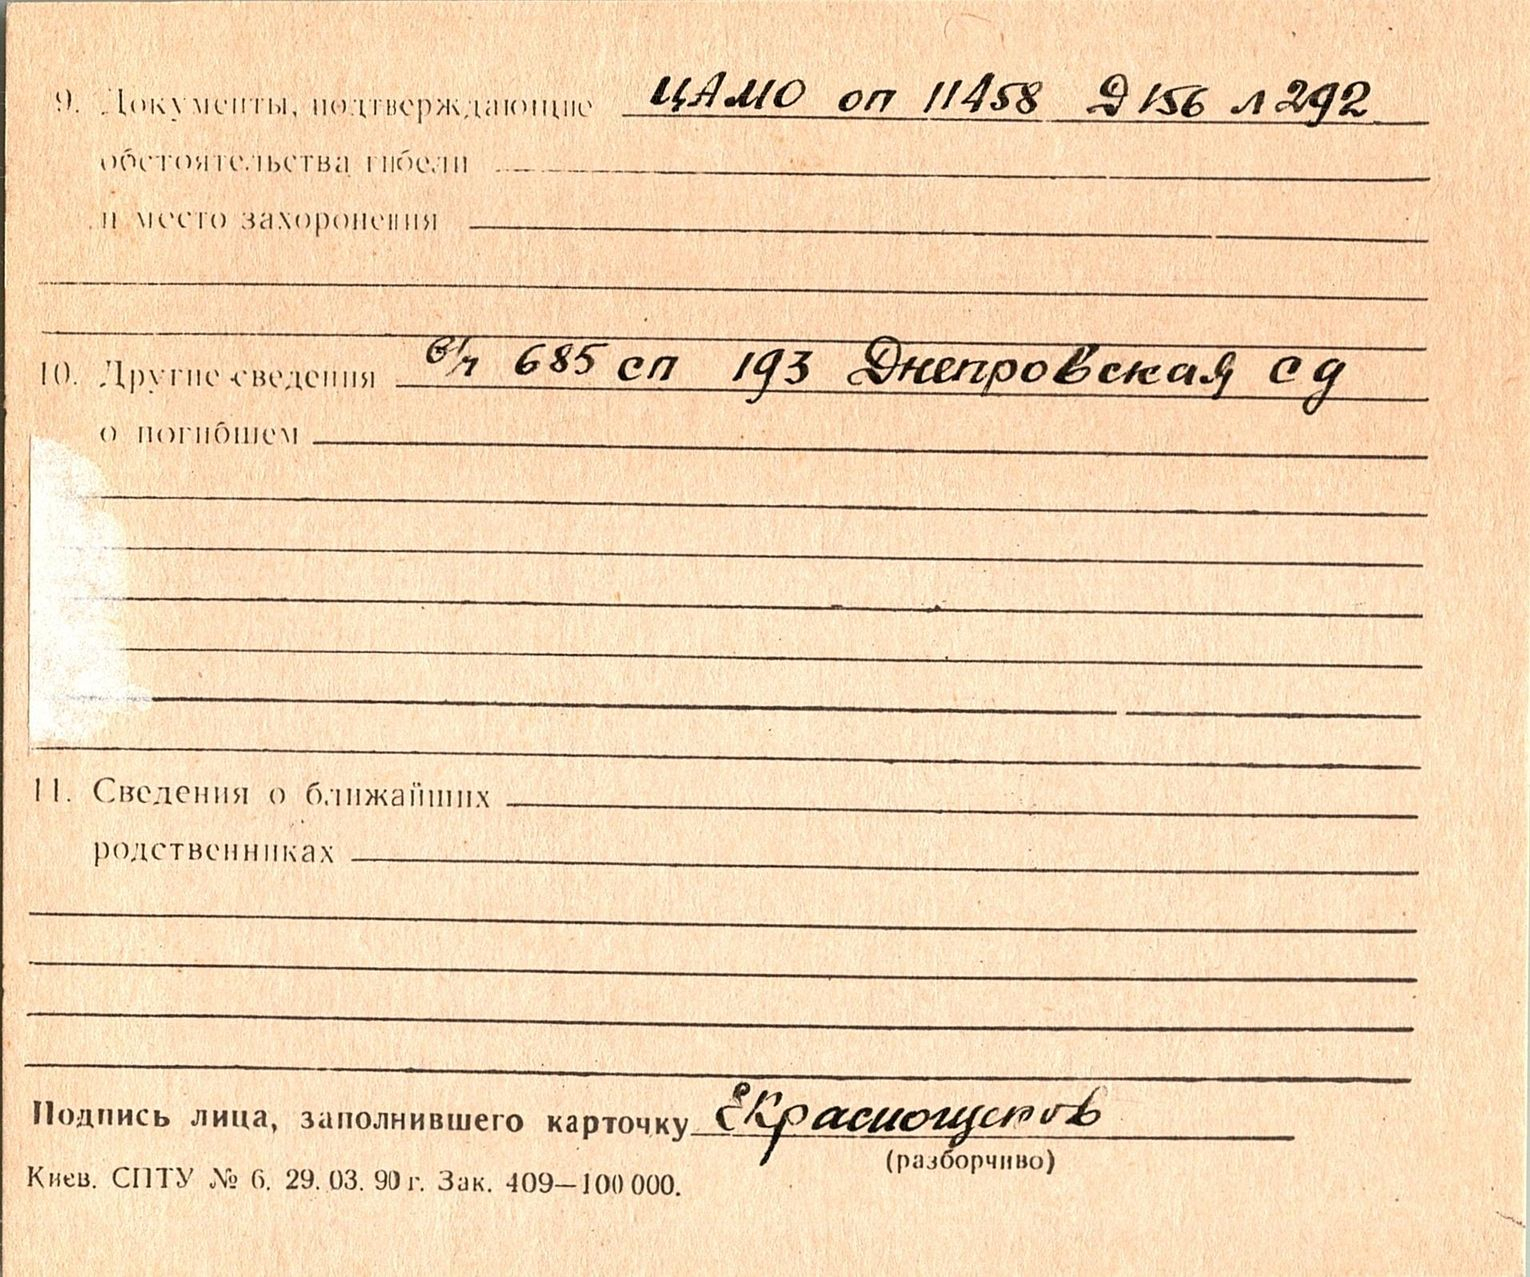 9. Документы, подтверждающие ЦАМО оп 11458 Д 156 л 292
обстоятельства гибели
и место захоронения
10. Другие сведения в/ч 685 сп 193 Днепровская сд
о погибшем
11. Сведения о ближайших
родственниках
Подпись лица, заполнившего карточку ЕКраснощеков
(разборчиво)
Киев. СПТУ № 6. 29. 03. 90 г. Зак. 409—100 000.